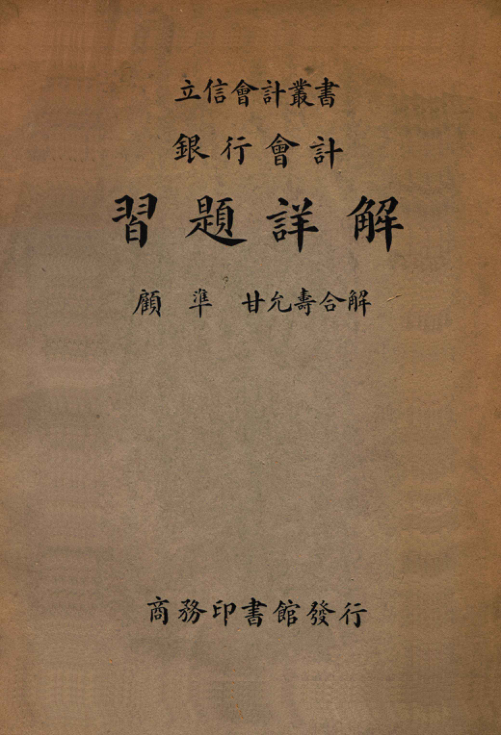 立信會計叢書
銀行會計
習題詳解
顧準 甘允壽合解
商務印書館發行